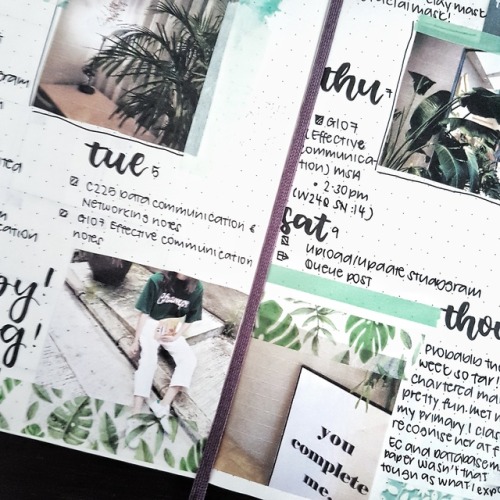 tue 5
C225 Data communication &
Networking notes
G107 Effective communication
notes
y!
g!
clay mask
thu 7
G107
(Effective
communica-
tion) MSA
• 2:30pm
(W24Q SN:14)
sat 9
upload/update studygram
Queue post
you
complete
me.
Probably the
week so far!
chartered ma
pretty fun. Met m
my primary 1 clas
recognise her at f
EC and Database m
paper wasn't that
tough as what I exp